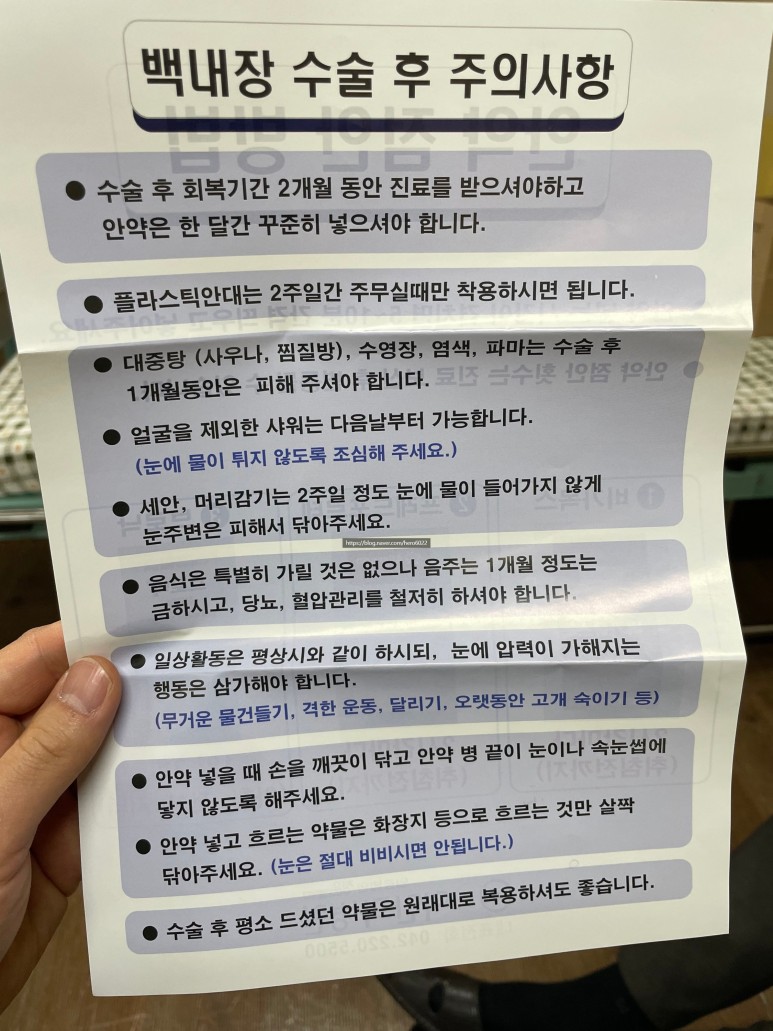 백내장 수술 후 주의사항
● 수술 후 회복기간 2개월 동안 진료를 받으셔야하고
안약은 한 달간 꾸준히 넣으셔야 합니다.
● 플라스틱안대는 2주일간 주무실때만 착용하시면 됩니다.
● 대중탕 (사우나, 찜질방), 수영장, 염색, 파마는 수술 후
1개월동안은 피해 주셔야 합니다.
● 얼굴을 제외한 샤워는 다음날부터 가능합니다.
(눈에 물이 튀지 않도록 조심해 주세요.)
● 세안, 머리감기는 2주일 정도 눈에 물이 들어가지 않게
눈주변은 피해서 닦아주세요.
https://blog.naver.com/hero6022
● 음식은 특별히 가릴 것은 없으나 음주는 1개월 정도는
금하시고, 당뇨, 혈압관리를 철저히 하셔야 합니다.
● 일상활동은 평상시와 같이 하시되, 눈에 압력이 가해지는
행동은 삼가해야 합니다.
(무거운 물건들기, 격한 운동, 달리기, 오랫동안 고개 숙이기 등)
● 안약 넣을 때 손을 깨끗이 닦고 안약 병 끝이 눈이나 속눈썹에
닿지 않도록 해주세요.
● 안약 넣고 흐르는 약물은 화장지 등으로 흐르는 것만 살짝
닦아주세요. (눈은 절대 비비시면 안됩니다.)
● 수술 후 평소 드셨던 약물은 원래대로 복용하셔도 좋습니다.